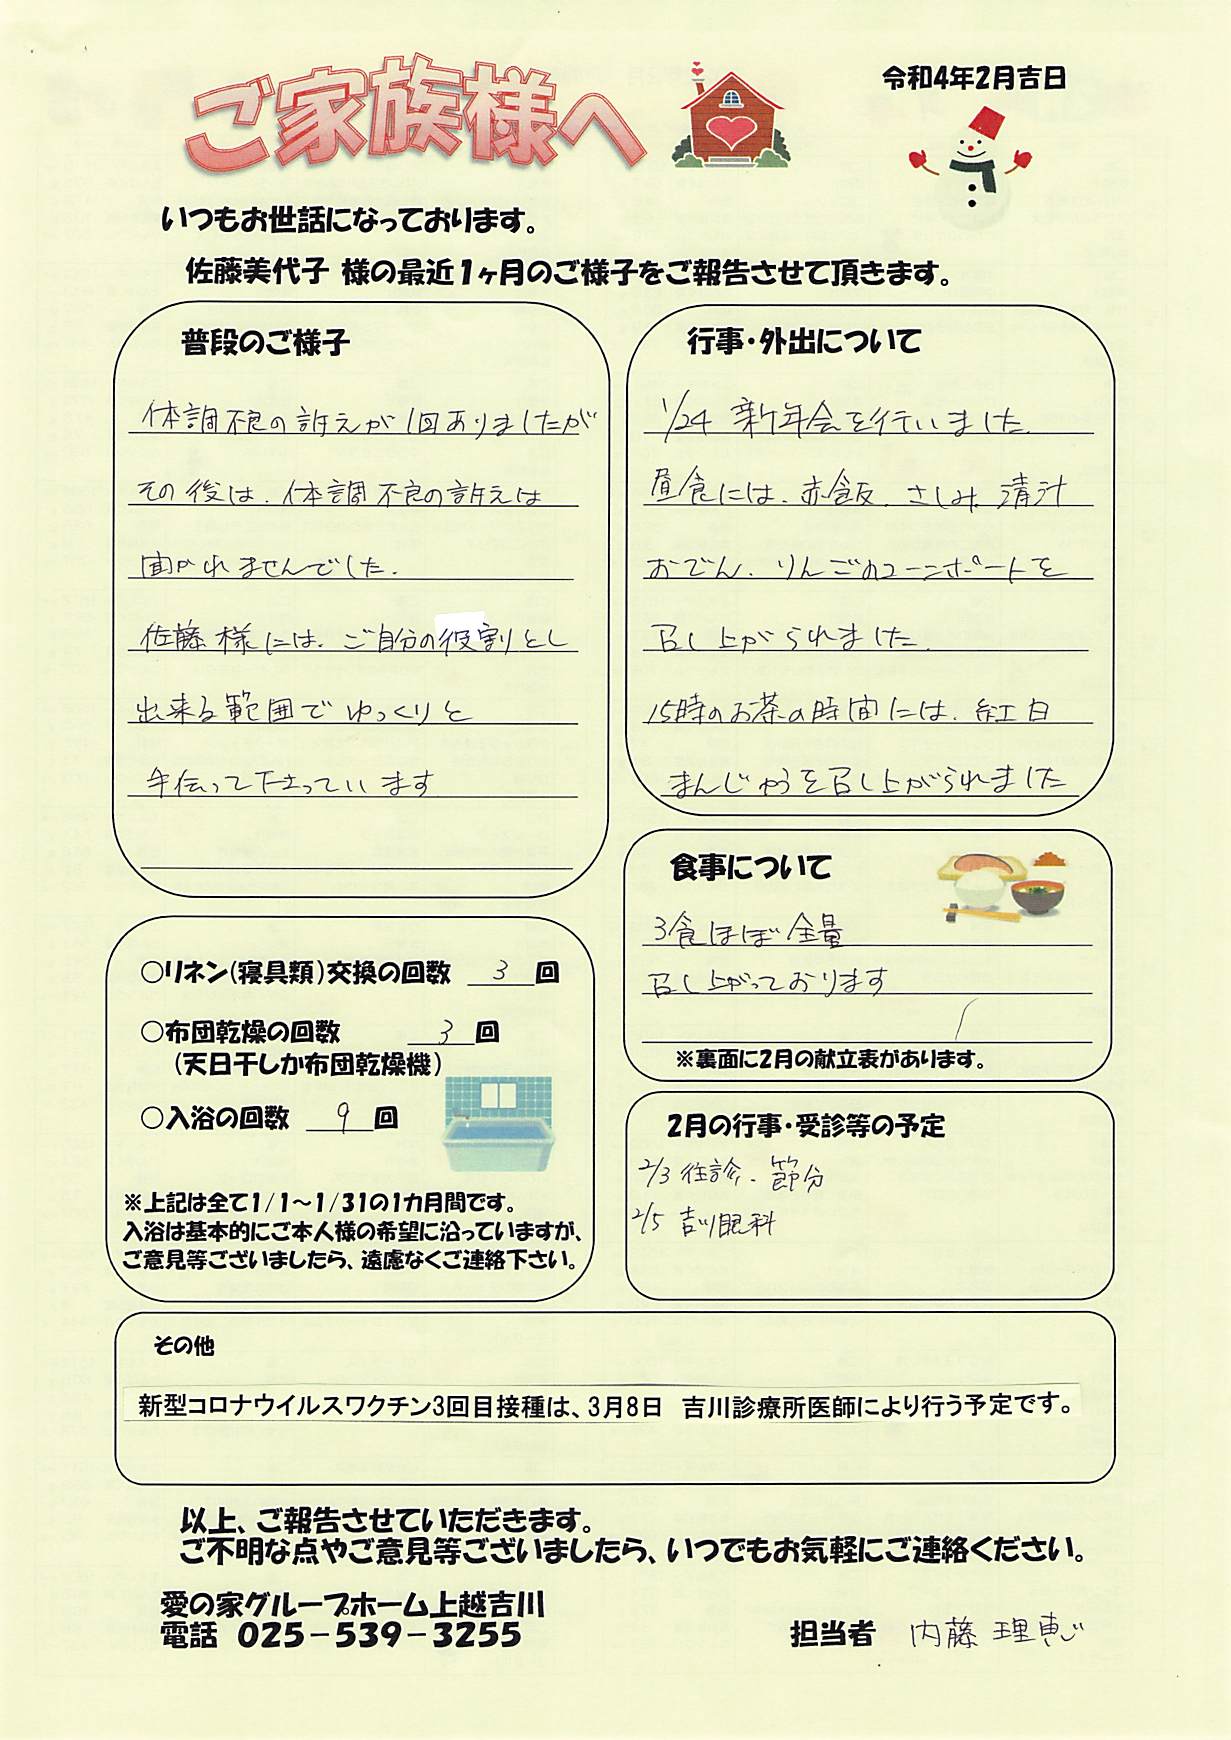 ご家族様へ
令和4年2月吉日
いつもお世話になっております。
佐藤美代子 様の最近1ヶ月のご様子をご報告させて頂きます。
普段のご様子
体調不良の訴えが1回ありましたが
その後は、体調不良の訴えは
聞かれませんでした.
佐藤様には、ご自分の役割とし
出来る範囲でゆっくりと
手伝って下さっています
行事・外出について
1/24 新年会を行いました.
昼食には、赤飯、さしみ、清汁
おでん、りんごのコーンポートを
召し上がられました.
15時のお茶の時間には、紅白
まんじゅうを召し上がられました
食事について
3食ほぼ全量
召し上がっております
※裏面に2月の献立表があります。
○リネン(寝具類)交換の回数 3 回
○布団乾燥の回数 3 回
(天日干しか布団乾燥機)
○入浴の回数 9 回
※上記は全て1/1～1/31の1カ月間です。
入浴は基本的にご本人様の希望に沿っていますが、
ご意見等ございましたら、遠慮なくご連絡下さい。
2月の行事・受診等の予定
2/3 往診、節分
2/5 吉川眼科
その他
新型コロナウイルスワクチン3回目接種は、3月8日 吉川診療所医師により行う予定です。
以上、ご報告させていただきます。
ご不明な点やご意見等ございましたら、いつでもお気軽にご連絡ください。
愛の家グループホーム上越吉川
電話 025-539-3255
担当者 内藤 理恵